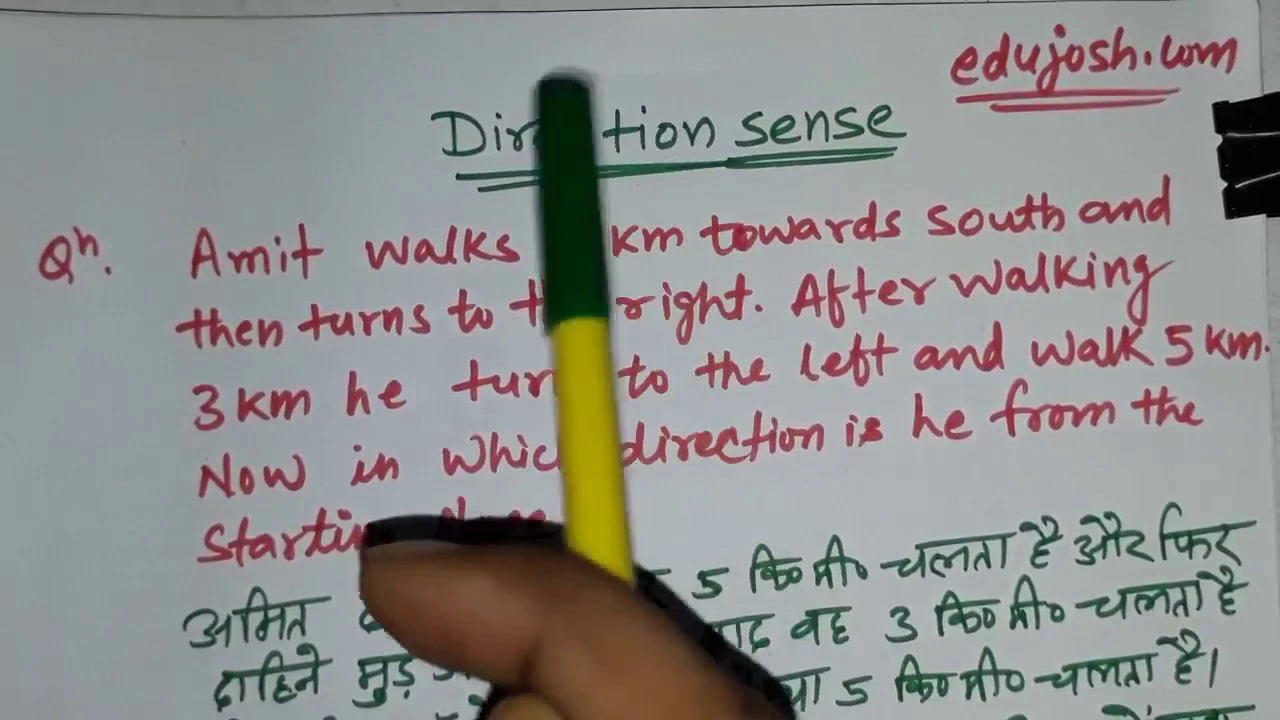 edujosh.com
sense
Qn. Amit walks km towards south and
then turns to right. After walking
3 km he to the left and walk 5 km.
Now in direction is he from the
5 कि० मी० चलता है और फिर
अमित वह 3 कि० मी० चलता है
दाहिने मुड़ 5 कि० मी० चलता है।